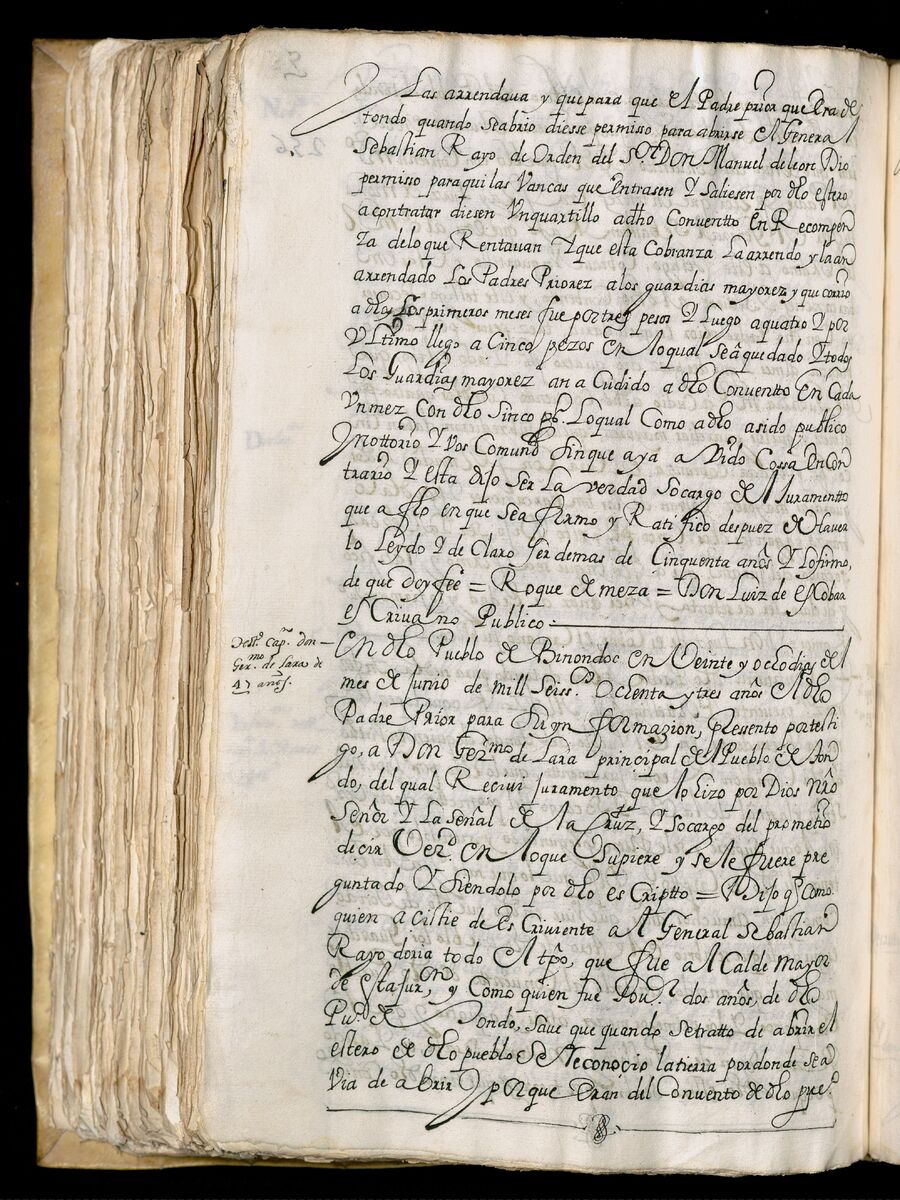 Las arrendaua y que para que el Padre prior que Era de
tondo quando se abrio diesse permisso para abrirse el General
Sebastian Rayo de Orden del S.or Don Manuel de leon Dio
permisso para qui las Vancas que Entrasen y Saliesen por dho estero
a contratar diesen Vn quartillo a dho Conuentto En Recompen
za de lo que Rentauan y que esta Cobranza La arrendo y la an
arrendado Los Padres Priorez a los guardias mayorez y que corrio
a dhos Los primeros meses fue por tres pesos y Luego a quatro y por
Vltimo llego a Cinco pezos en lo qual se á quedado y todos
Los Guardias mayorez an a Cudido a dho Conuentto En Cada
Vn mez Con dho Sinco ps. Lo qual Como a dho a sido publico
Nottorio y Vos Comun Sin que aya a Vido Cossa En Con
trario y Esta dijo Ser La verdad Socargo del Juramentto
que a fho en que Sea firmo y Ratifico despuez de Hauer
lo Leydo y de Claro Ser demas de Cinquenta años y lo firmo,
de que doy fee = Roque de meza = Don Luiz de esCobar
esCriuano Publico =
Ger.mo de Lara de
47 años.
En dho Pueblo de Binondoc en Veinte y ocho dias del
mes de Junio de mill Seiss.os Ochenta y tres años el dho
Padre Prior para Su yn formazion, Presento por testi
go, a Don Ger.mo de Lara principal del Pueblo de ton
do, del qual Reciui Juramento que lo hizo por Dios nro
Señor y La Señal de la Cruz, y Socargo del prometio
decir Verd. en lo que Supiere y se le fuere pre
guntado y Siendolo por dho esCriptto = Dijo q Como
quien a cistie de EsCriuiente a el General Sebastian
Rayo doria todo el tpo, que fue alCalde mayor
de Esta Jurn, y Como quien fue Gou.or dos años, de dho
Pu.o de tondo, Saue que quando Se tratto de abrir el
estero de dho pueblo Se Reconoçio la tierra por donde se a
Via de abrir y porque Eran del Convento de dho